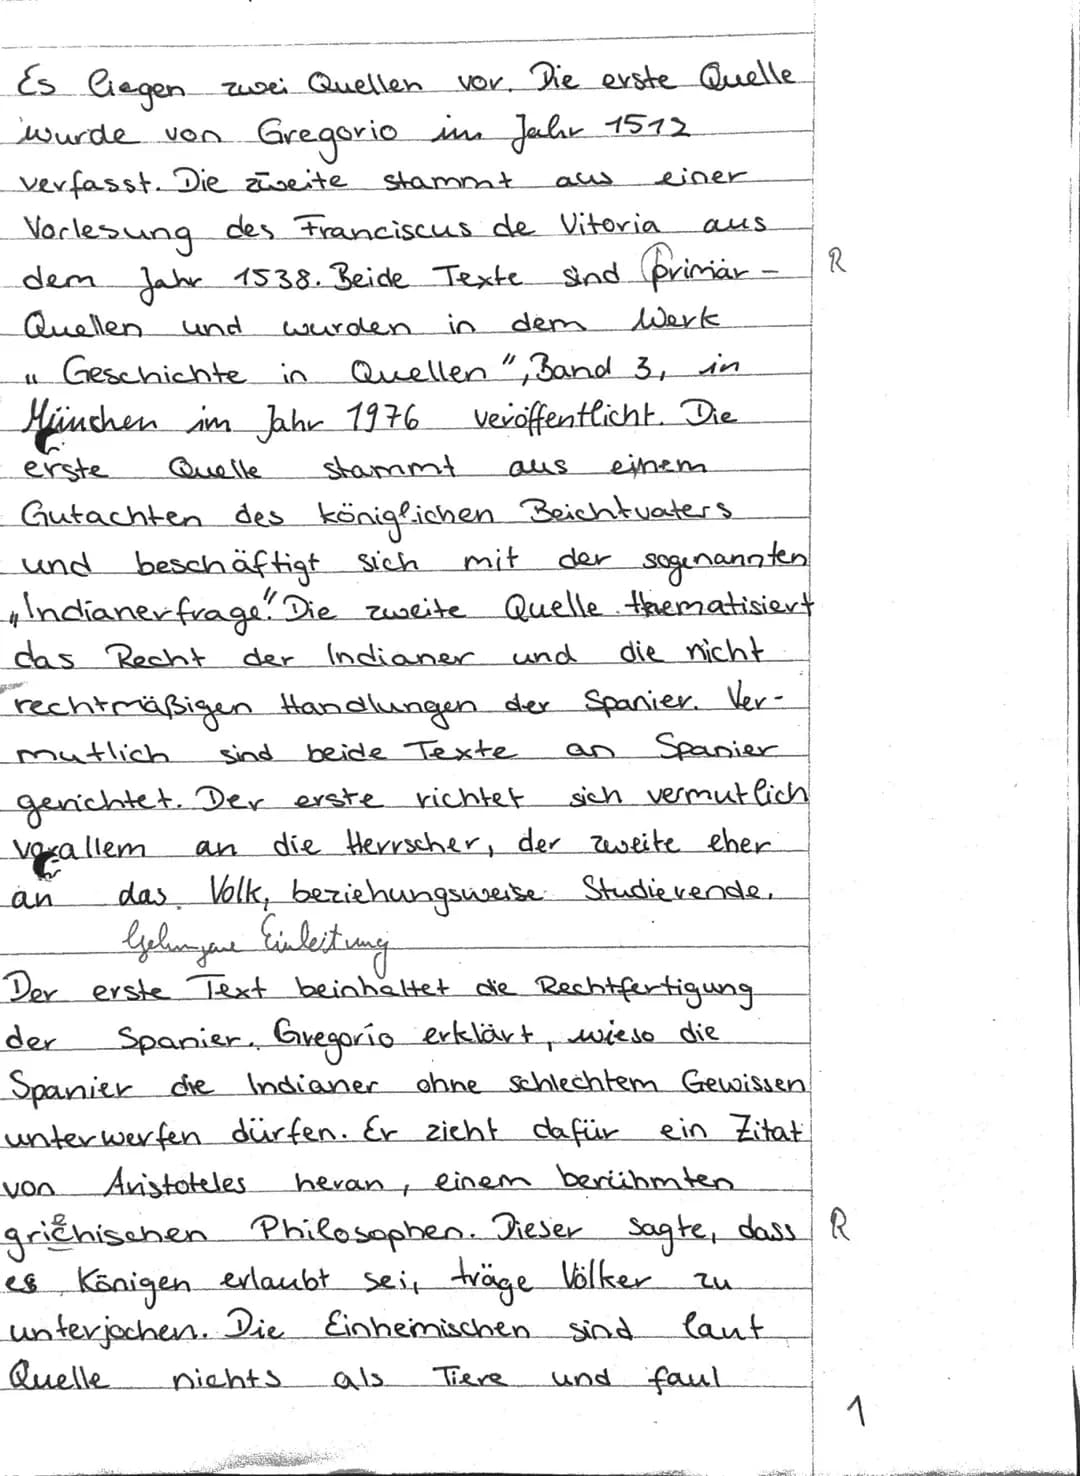 Es liegen zwei Quellen vor. Die erste Quelle
wurde von Gregorio im Jahr 1512
verfasst. Die zweite stammt aus einer
Vorlesung des Franciscus de Vitoria aus
dem Jahr 1538. Beide Texte sind primär- R
Quellen und wurden in dem Werk
„Geschichte in Quellen", Band 3, in
München im Jahr 1976 veröffentlicht. Die
erste Quelle stammt aus einem
Gutachten des königlichen Beichtvaters
und beschäftigt sich mit der sogenannten
„Indianerfrage". Die zweite Quelle thematisiert
das Recht der Indianer und die nicht
rechtmäßigen Handlungen der Spanier. Ver-
mutlich sind beide Texte an Spanier
gerichtet. Der erste richtet sich vermutlich
vorallem an die Herrscher, der zweite eher
an das Volk, beziehungsweise Studierende.
Gelungene Einleitung
Der erste Text beinhaltet die Rechtfertigung
der Spanier. Gregorio erklärt, wieso die
Spanier die Indianer ohne schlechtem Gewissen
unterwerfen dürfen. Er zieht dafür ein Zitat
von Aristoteles heran, einem berühmten
griechischen Philosophen. Dieser sagte, dass R
es Königen erlaubt sei, träge Völker zu
unterjochen. Die Einheimischen sind laut
Quelle nichts als Tiere und faul
1